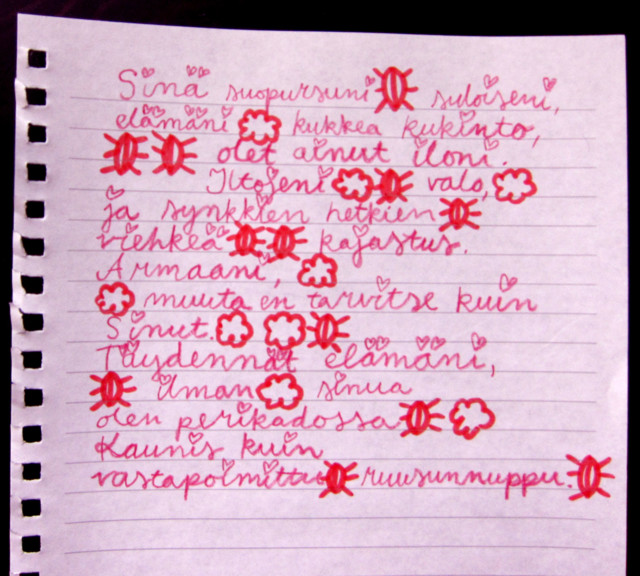 Sinä suopursuni suloiseni,
elämäni kukkea kukinto,
olet ainut iloni.
Iltojeni valo,
ja synkkien hetkien
viehkeä kajastus.
Armaani,
muuta en tarvitse kuin
Sinut.
Täydennät elämäni,
ilman sinua
olen perikadossa
Kaunis kuin
vastapoimittu ruusunnuppu.